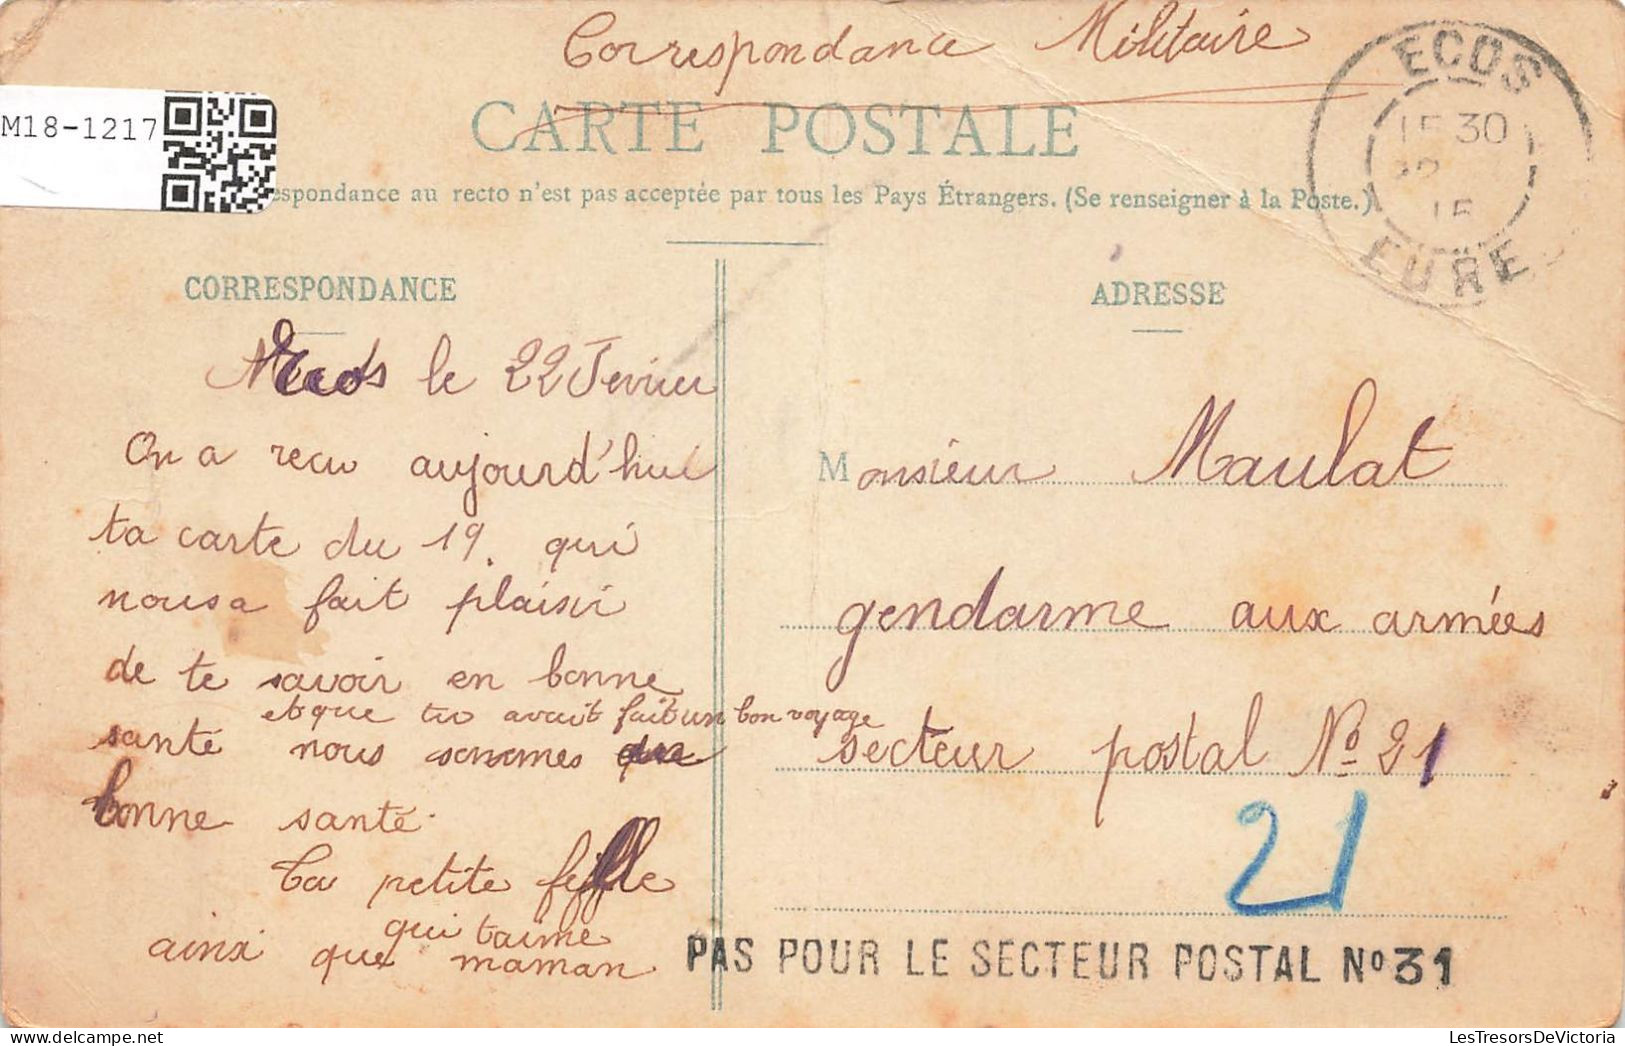 Correspondance Militaire
M18-1217
CARTE POSTALE
espondance au recto n'est pas acceptée par tous les Pays Étrangers. (Se renseigner à la Poste.)
ECOS
15 30
22
15
EURE
CORRESPONDANCE
Ecos le 22 Fevrier
On a recu aujourd'hui
ta carte du 19. qui
nous a fait plaisir
de te savoir en bonne
et que tu avait fait un bon voyage
santé nous sommes en
bonne santé.
Ta petite fille
qui t'aime
ainxi que maman
ADRESSE
Monsieur Maulat
gendarme aux armées
secteur postal No 21
21
PAS POUR LE SECTEUR POSTAL No 31
LesTresorsDeVictoria